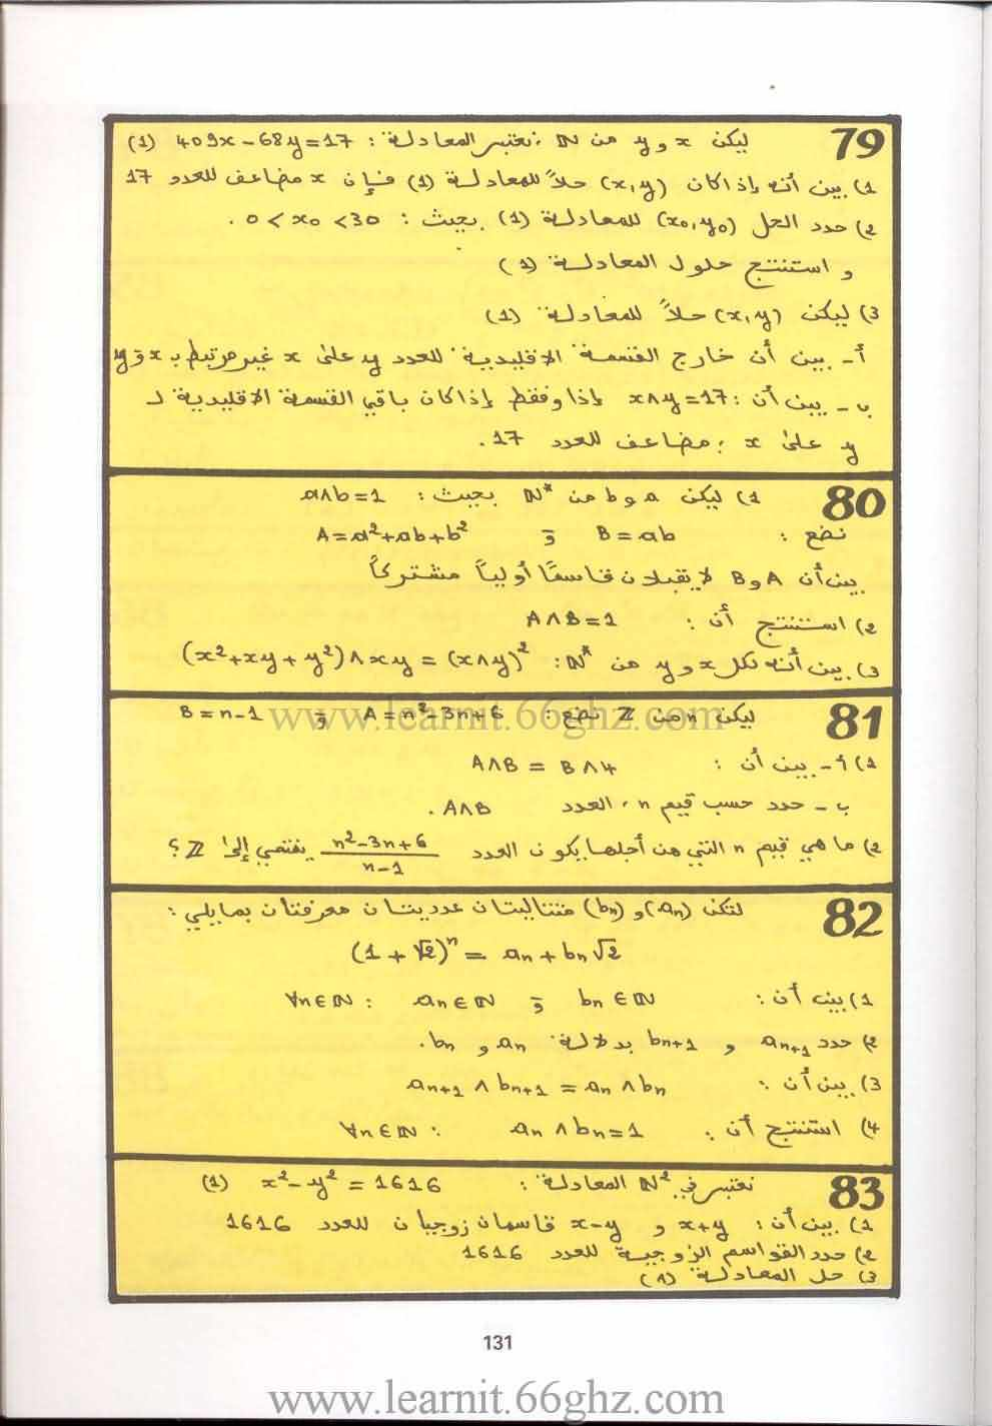 79 ليكن x و y من ℕ، نعتبر المعادلة: 409x - 68y = 17 (1)
1) بين أنه إذا كان (x,y) حلاً للمعادلة (1) فإن x مضاعف للعدد 17
2) حدد الحل (x₀,y₀) للمعادلة (1) بحيث: 0 < x₀ < 30.
و استنتج حلول المعادلة (1)
3) ليكن (x,y) حلاً للمعادلة (1)
أ- بين أن خارج القسمة الاقليدية للعدد y على x غير مرتبط بـ x و y
ب- بين أن: x∧y = 17 إذا وفقط إذا كان باقي القسمة الاقليدية لـ
y على x، مضاعف للعدد 17.
80 1) ليكن a و b من ℕ* بحيث: a∧b = 1
نضع: B = ab و A = a²+ab+b²
بين أن A و B لا يقبلان قاسمًا أوليًا مشتركًا
2) استنتج أن: A∧B = 1
3) بين أنه لكل x و y من ℕ*: (x²+xy+y²)∧xy = (x∧y)²
81 ليكن n من ℤ نضع: A = n²-3n+6 و B = n-1
1) أ- بين أن: A∧B = B∧4
ب- حدد حسب قيم n، العدد A∧B.
2) ما هي قيم n التي من أجلها يكون العدد (n²-3n+6)/(n-1) ينتمي إلى ℤ؟
82 لتكن (aₙ) و (bₙ) متتاليتان عدديتان معرفتان بمايلي:
(1+√2)ⁿ = aₙ + bₙ√2
1) بين أن: bₙ ∈ ℕ و aₙ ∈ ℕ : ∀n∈ℕ
2) حدد aₙ₊₁ و bₙ₊₁ بدلالة aₙ و bₙ.
3) بين أن: aₙ₊₁ ∧ bₙ₊₁ = aₙ ∧ bₙ
4) استنتج أن: aₙ ∧ bₙ = 1 : ∀n∈ℕ
83 نعتبر في ℕ² المعادلة: x² - y² = 1616 (1)
1) بين أن: x+y و x-y قاسمان زوجيان للعدد 1616
2) حدد القواسم الزوجية للعدد 1616
3) حل المعادلة (1)
131
www.learnit.66ghz.com
www.learnit.66ghz.com